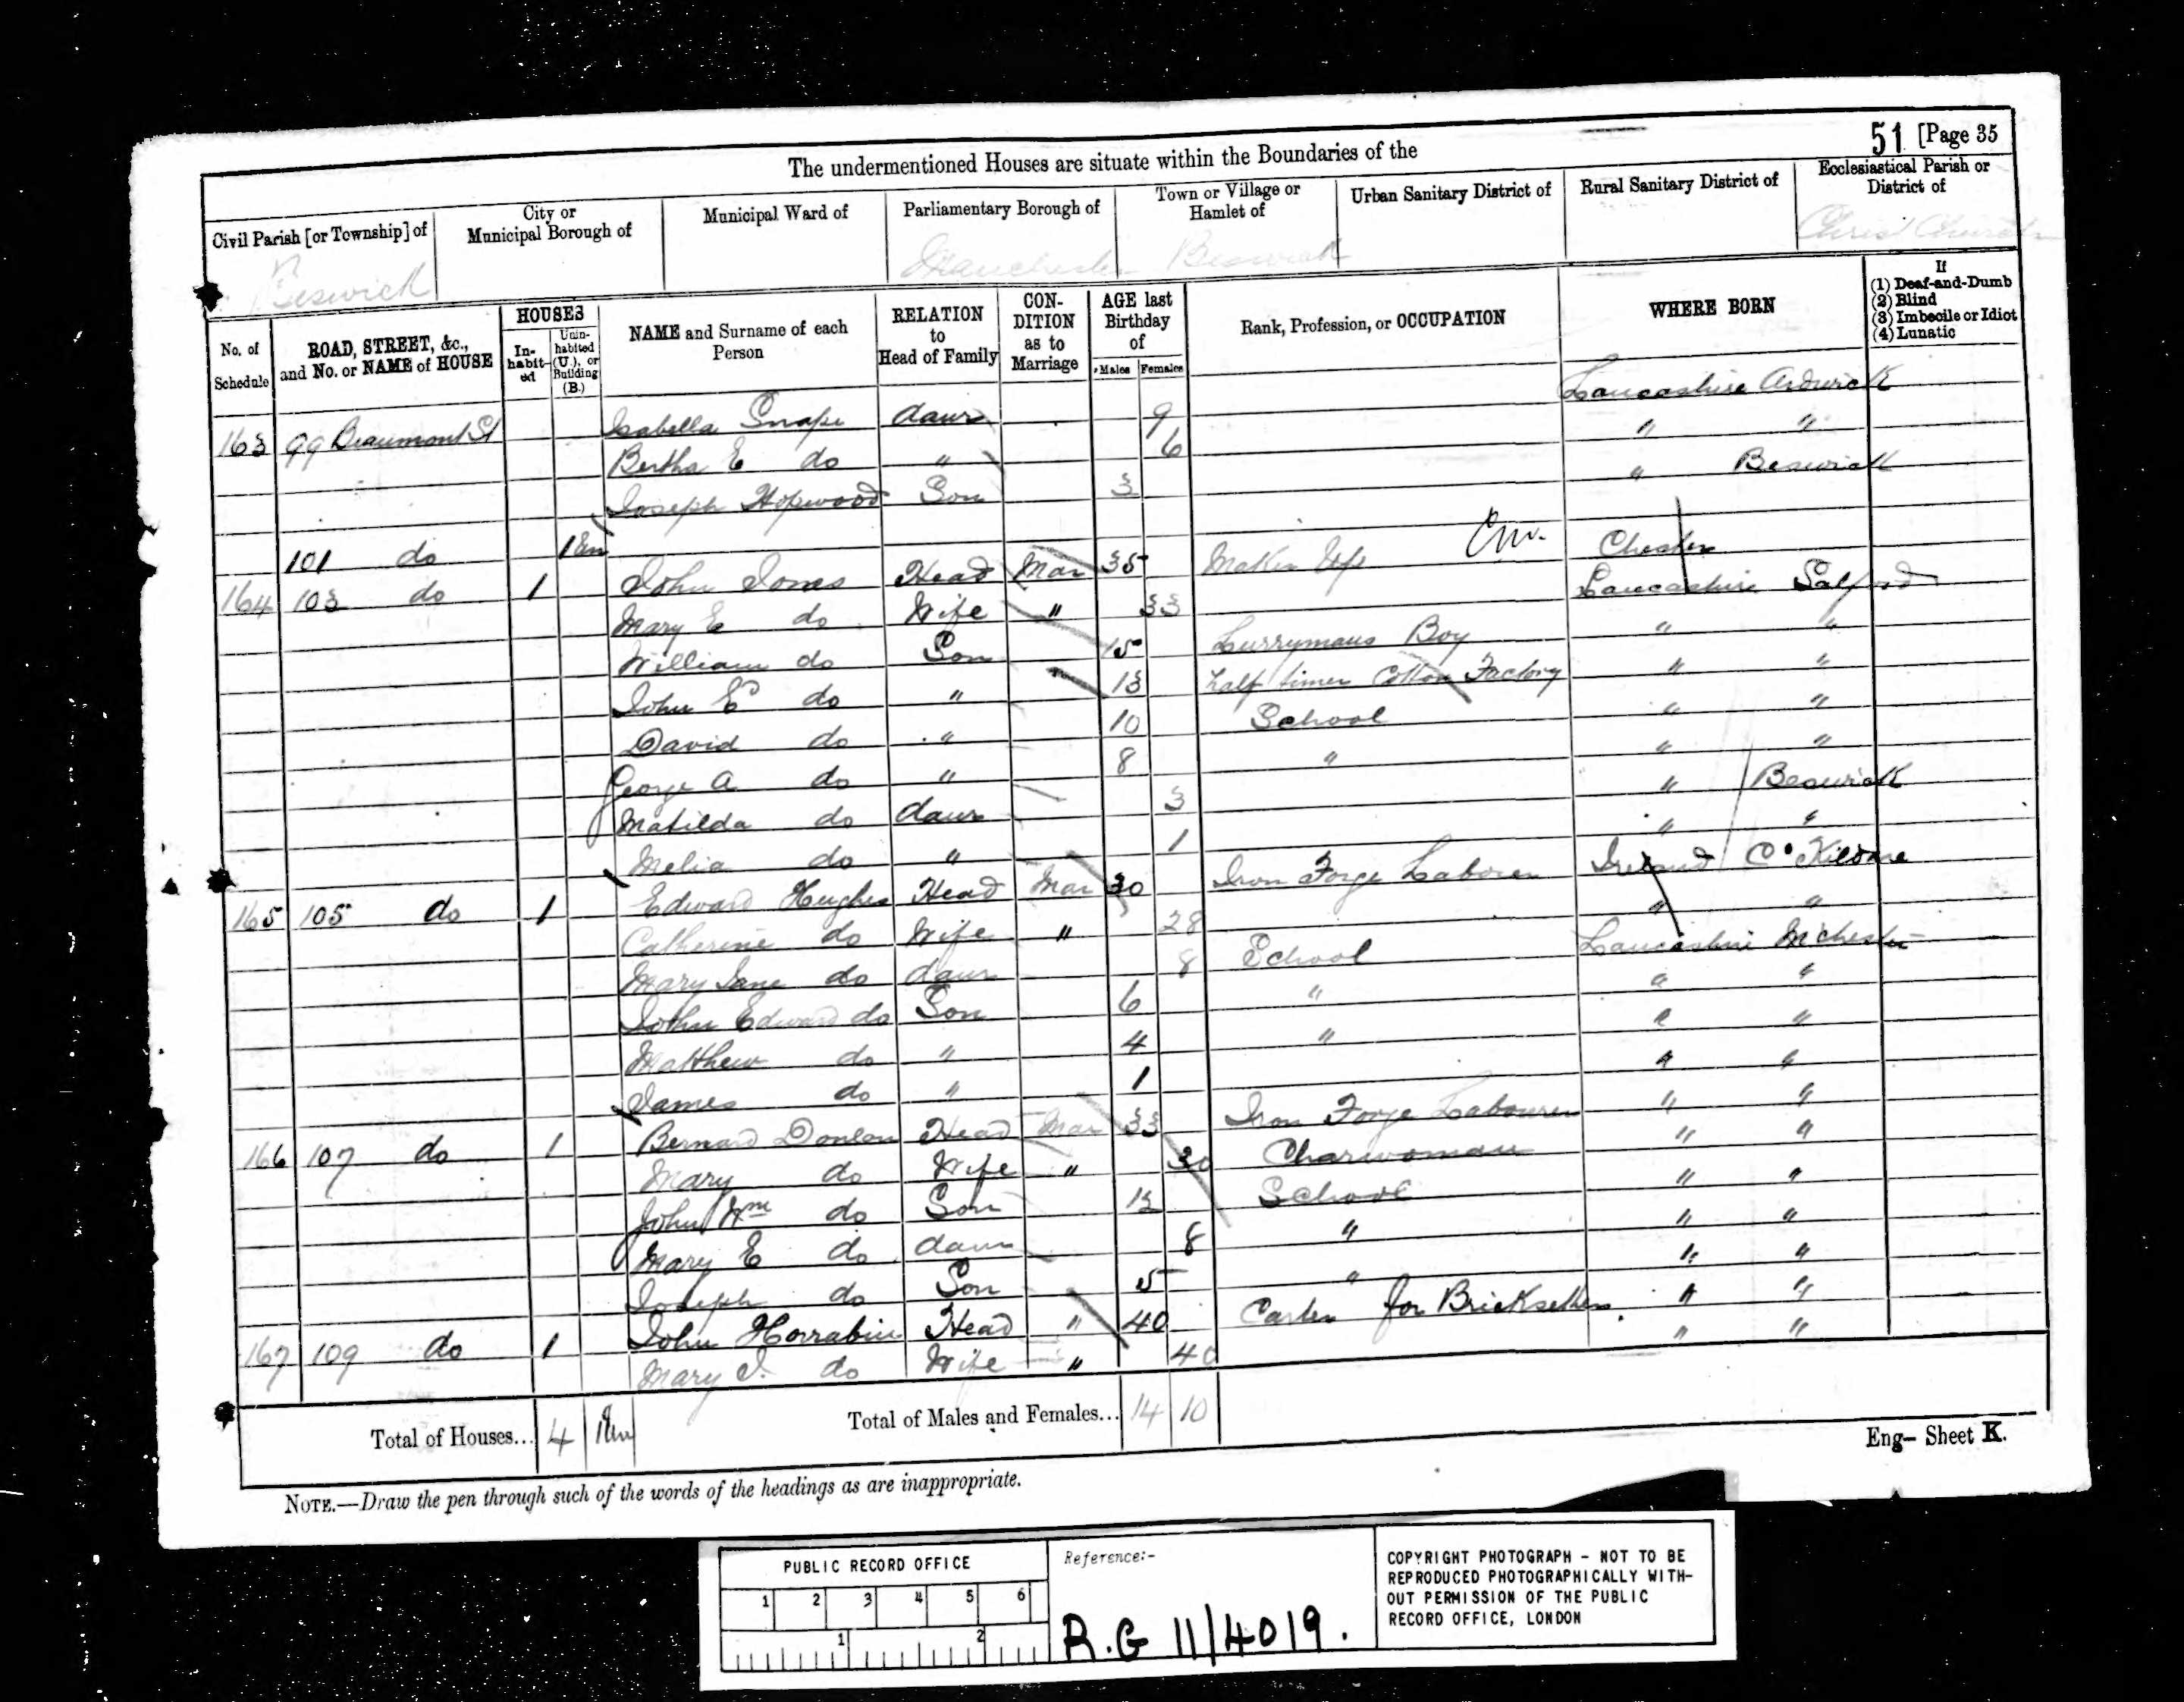 51 [Page 35
The undermentioned Houses are situate within the Boundaries of the
Civil Parish [or Township] of
City or Municipal Borough of
Municipal Ward of
Parliamentary Borough of
Town or Village or Hamlet of
Urban Sanitary District of
Rural Sanitary District of
Ecclesiastical Parish or District of
Beswick Manchester Beswick Christ Church
No. of Schedule
ROAD, STREET, &c., and No. or NAME of HOUSE
HOUSES
In-habit-ed
Unin-habited (U.), or Building (B.)
NAME and Surname of each Person
RELATION to Head of Family
CON-DITION as to Marriage
AGE last Birthday of
Males Females
Rank, Profession, or OCCUPATION
WHERE BORN
If
(1) Deaf-and-Dumb
(2) Blind
(3) Imbecile or Idiot
(4) Lunatic
163 99 Beaumont St Isabella Snape daur 9 Lancashire Ardwick
Bertha E do " 6 " "
Joseph Hopwood Son 3 " Beswick
101 do 1 Un
164 103 do 1 John Jones Head Mar 35 Maker Up Chester
Mary E do Wife " 33 Lancashire Salford
William do Son 15 Lurrymans Boy " "
John E do " 13 half timer Cotton Factory " "
David do " 10 School " "
George A do " 8 " " "
Matilda do daur 3 " Beswick
Melia do " 1 " "
165 105 do 1 Edward Hughes Head Mar 30 Iron Forge Laborer Ireland Co Kildare
Catherine do Wife " 28 " "
Mary Jane do daur 8 School Lancashire Mchester
John Edward do Son 6 " " "
Matthew do " 4 " " "
James do " 1 " "
166 107 do 1 Bernard Donlon Head Mar 33 Iron Forge Labourer " "
Mary do Wife " 30 Charwoman " "
John Wm do Son 12 School " "
Mary E do daur 8 " " "
Joseph do Son 5 " " "
167 109 do 1 John Horrabin Head " 40 Carter for Bricksetters " "
Mary J. do Wife " 40 " "
Total of Houses... 4 1 Un Total of Males and Females... 14 10
Eng– Sheet K.
NOTE.—Draw the pen through such of the words of the headings as are inappropriate.
PUBLIC RECORD OFFICE
1 2 3 4 5 6
1 2
Reference:-
R.G 11/4019.
COPYRIGHT PHOTOGRAPH - NOT TO BE
REPRODUCED PHOTOGRAPHICALLY WITH-
OUT PERMISSION OF THE PUBLIC
RECORD OFFICE, LONDON